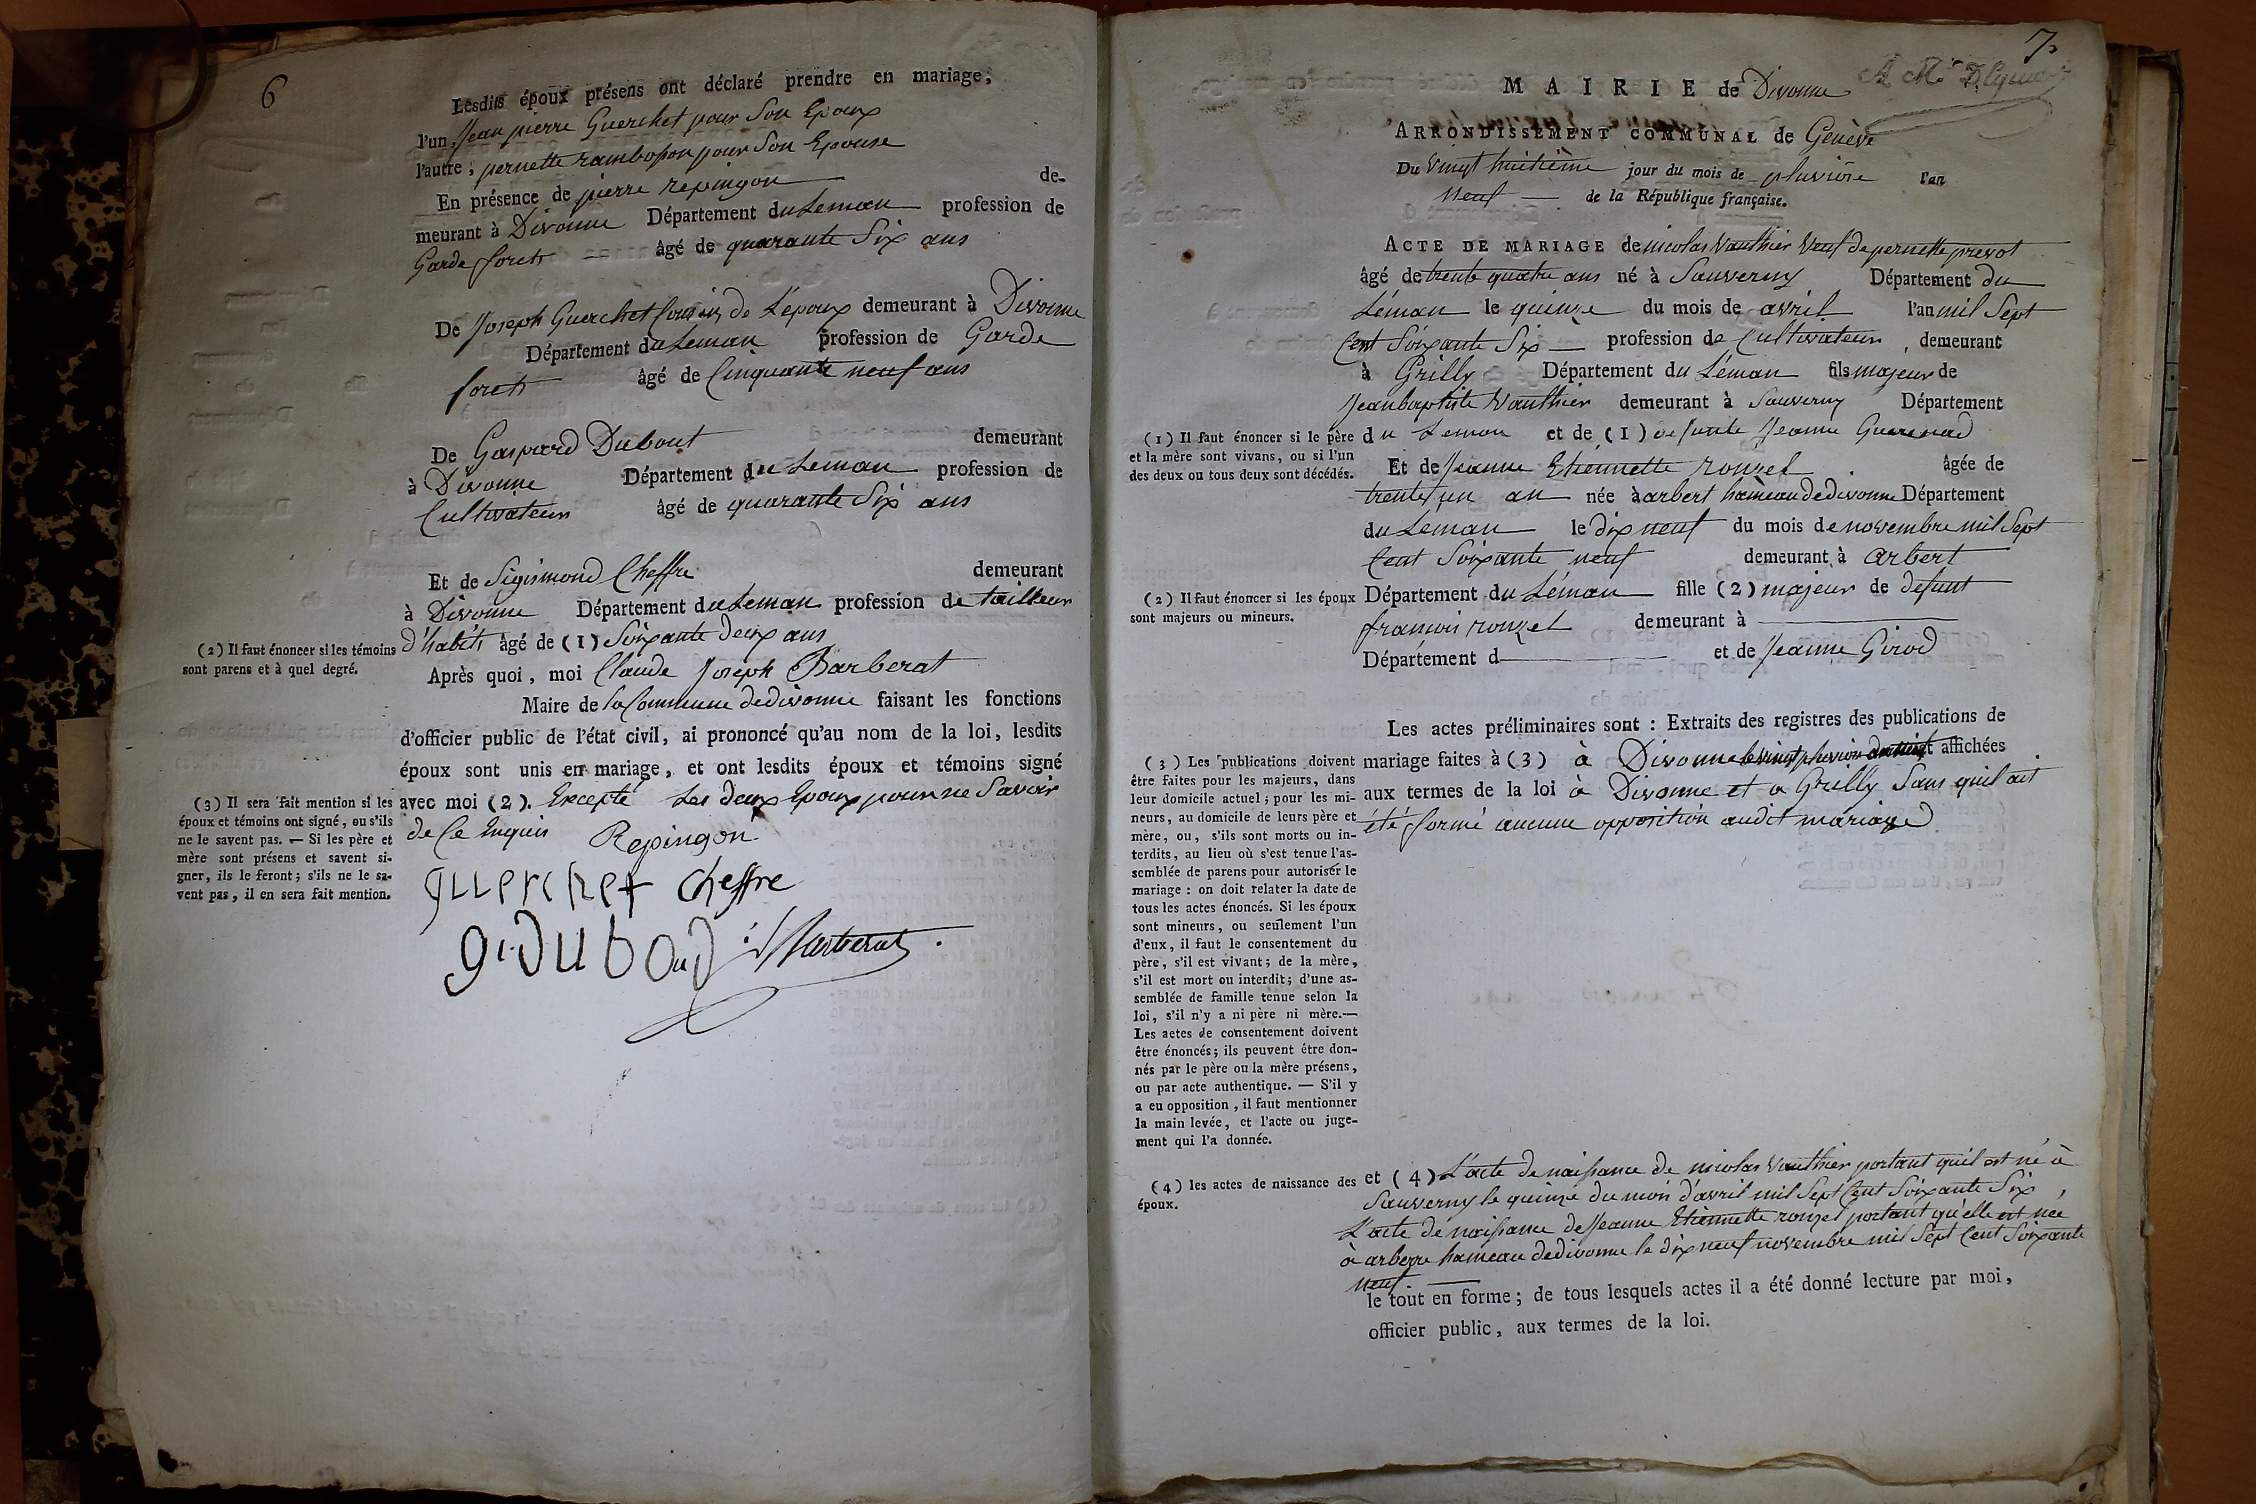 6
Lesdits époux présens ont déclaré prendre en mariage,
l'un, Jean pierre Guerchet pour Son Epoux
l'autre, pernette rambosson pour Son Epouse
En présence de pierre repingon de-
meurant à Divonne Département du Leman profession de
Garde forets âgé de quarante Six ans
De Joseph Guerchet Cousin de L'époux demeurant à Divonne
Département du Leman profession de Garde
forets âgé de Cinquante neuf ans
De Gaspard Dubout demeurant
à Divonne Département du Leman profession de
Cultivateur âgé de quarante Six ans
Et de Sigismond Cheffre demeurant
à Divonne Département du Leman profession de tailleur
d'habits âgé de (1) Soixante deux ans
(2) Il faut énoncer si les témoins
sont parens et à quel degré.
Après quoi, moi Claude Joseph Barberat
Maire de la Commune de divonne faisant les fonctions
d'officier public de l'état civil, ai prononcé qu'au nom de la loi, lesdits
époux sont unis en mariage, et ont lesdits époux et témoins signé
avec moi (2). Excepté Les deux Epoux pour ne Savoir
de Ce Enquis
(3) Il sera fait mention si les
époux et témoins ont signé, ou s'ils
ne le savent pas. — Si les père et
mère sont présens et savent si-
gner, ils le feront; s'ils ne le sa-
vent pas, il en sera fait mention.
Repingon
guerchet cheffre
g. duboud Barberat
7
MAIRIE de Divonne
ARRONDISSEMENT COMMUNAL de Genève
Du Vingt huitième jour du mois de pluviôse l'an
Neuf de la République française.
ACTE DE MARIAGE de nicolas Vauthier Veuf de pernette prevot
âgé de trente quatre ans né à Sauverny Département du
Léman le quinze du mois de avril l'an mil Sept
Cent Soixante Six profession de Cultivateur, demeurant
à Grilly Département du Léman fils majeur de
Jean baptiste Vauthier demeurant à Sauverny Département
du Leman et de (1) defunte Jeanne
(1) Il faut énoncer si le père
et la mère sont vivans, ou si l'un
des deux ou tous deux sont décédés.
Et de Jeanne Etiennette rouzet âgée de
trente un an née à arbert hameau de divonne Département
du Leman le dix neuf du mois de novembre mil Sept
Cent Soixante neuf demeurant à arbert
Département du Léman fille (2) majeur de defunt
(2) Il faut énoncer si les époux
sont majeurs ou mineurs.
francois rouzet demeurant à
Département d et de Jeanne Girod
Les actes préliminaires sont : Extraits des registres des publications de
mariage faites à (3) à Divonne le vingt pluviose et affichées
aux termes de la loi à Divonne et a Grilly Sans quil ait
été formé aucune opposition audit mariage
(3) Les publications doivent
être faites pour les majeurs, dans
leur domicile actuel; pour les mi-
neurs, au domicile de leurs père et
mère, ou, s'ils sont morts ou in-
terdits, au lieu où s'est tenue l'as-
semblée de parens pour autoriser le
mariage : on doit relater la date de
tous les actes énoncés. Si les époux
sont mineurs, ou seulement l'un
d'eux, il faut le consentement du
père, s'il est vivant; de la mère,
s'il est mort ou interdit; d'une as-
semblée de famille tenue selon la
loi, s'il n'y a ni père ni mère.—
Les actes de consentement doivent
être énoncés; ils peuvent être don-
nés par le père ou la mère présens,
ou par acte authentique. — S'il y
a eu opposition, il faut mentionner
la main levée, et l'acte ou juge-
ment qui l'a donnée.
(4) les actes de naissance des
époux.
et (4) L'acte de naissance de nicolas Vauthier portant quil est né à
Sauverny le quinze du mois d'avril mil Sept Cent Soixante Six,
L'acte de naissance de Jeanne Etiennette rouzet portant qu'elle est née
à arberre hameau de divonne le dix neuf novembre mil Sept Cent Soixante
Neuf
le tout en forme; de tous lesquels actes il a été donné lecture par moi,
officier public, aux termes de la loi.